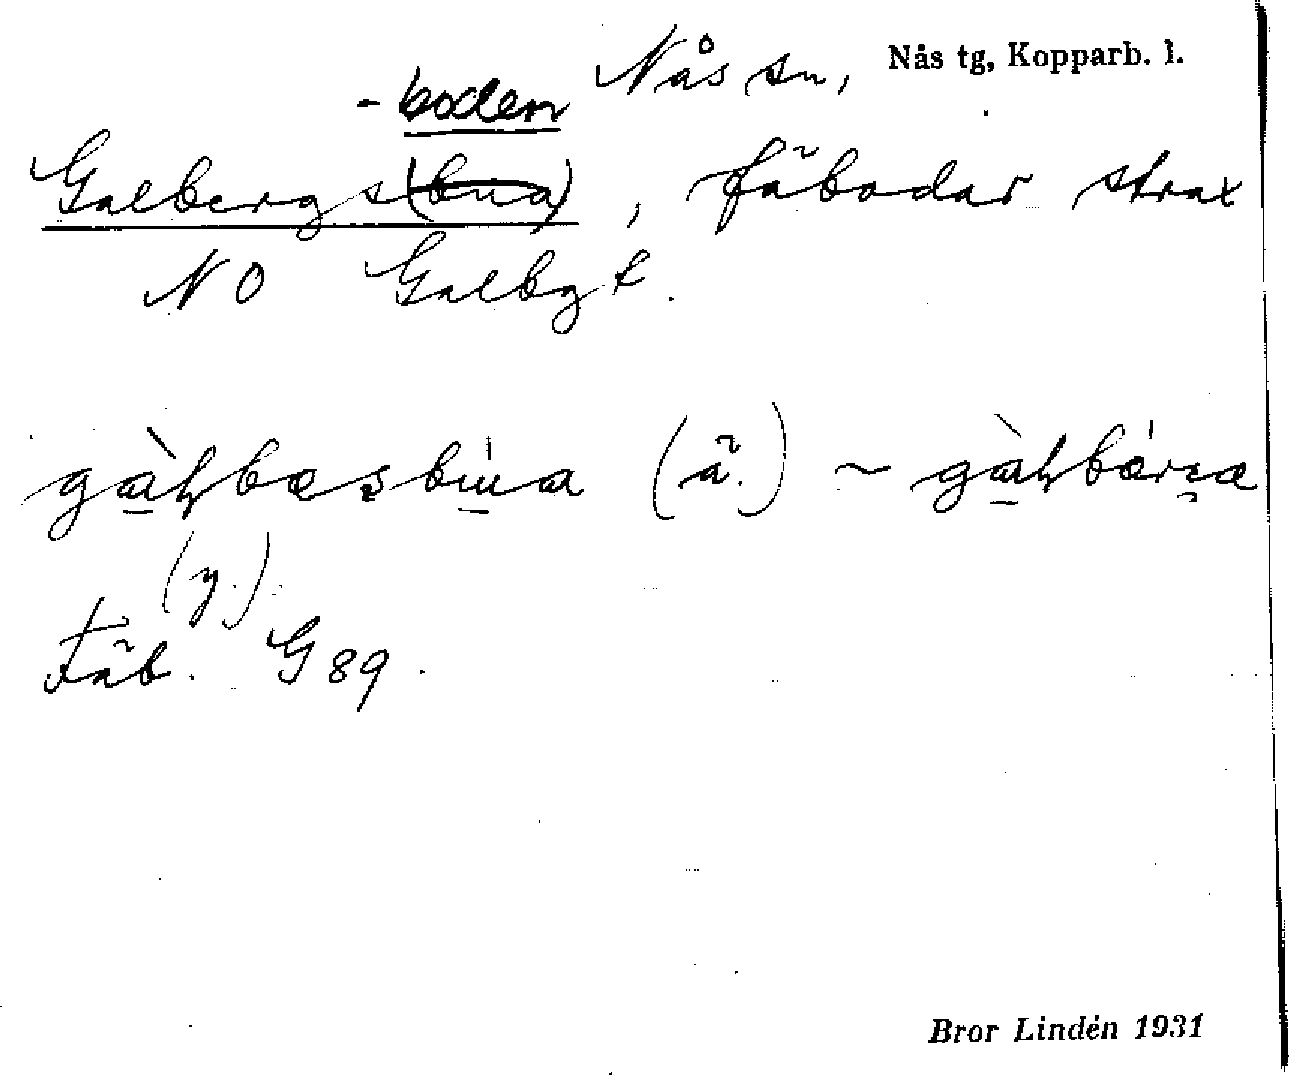 Nås sn, Nås tg, Kopparb. l.
-boden
Galbergs(bua), fäbodar strax
NO Galbgt.
gàɫbæsbùa (ä.) ~ gàɫbǽrsæ
(y.)
Fäb. G 89.
Bror Lindén 1931